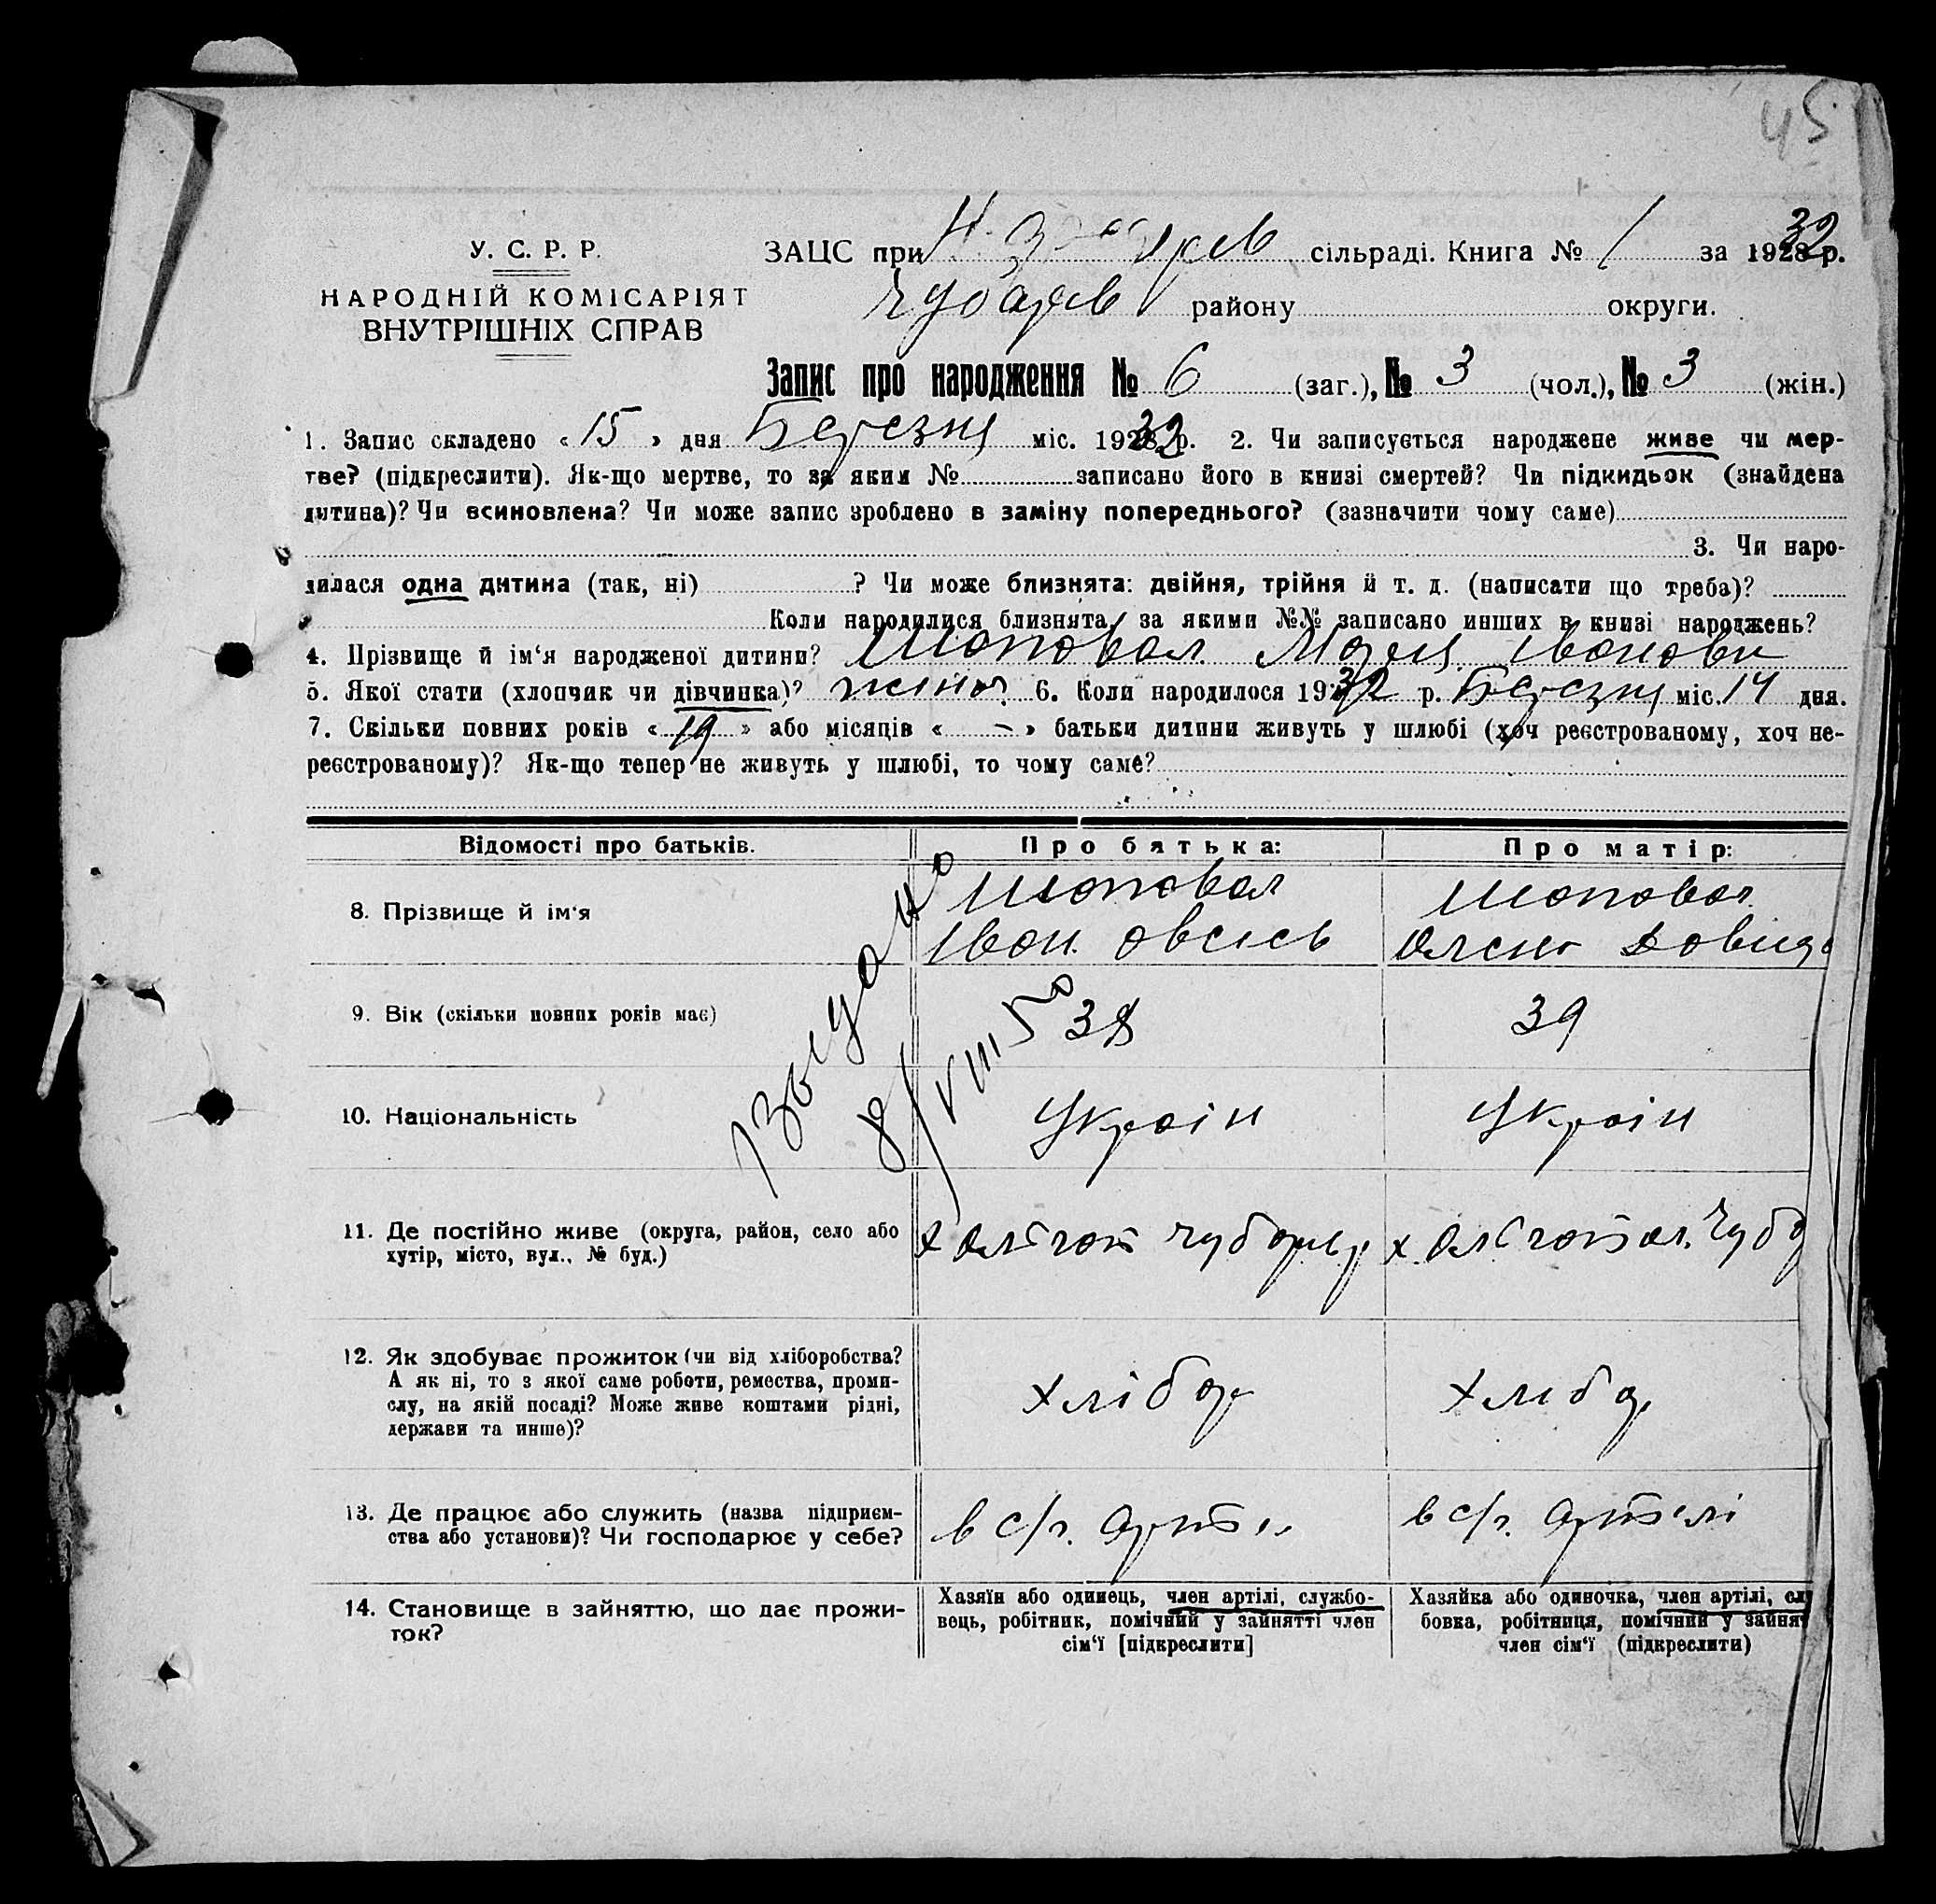 45
У. С. Р. Р.
НАРОДНІЙ КОМІСАРІЯТ
ВНУТРІШНІХ СПРАВ
ЗАЦС при Н. сільраді. Книга № 1 за 1932 р.
Чубарів району округи.
Запис про народження № 6 (заг.), № 3 (чол.), № 3 (жін.)
1. Запис складено « 15 » дня Березня міс. 1932 р. 2. Чи записується народжене живе чи мер-
тве? (підкреслити). Як-що мертве, то за яким № записано його в книзі смертей? Чи підкидьок (знайдена
дитина)? Чи всиновлена? Чи може запис зроблено в заміну попереднього? (зазначити чому саме)
3. Чи наро-
дилася одна дитина (так, ні) ? Чи може близнята: двійня, трійня й т. д. (написати що треба)?
Коли народилися близнята, за якими №№ записано инших в книзі народжень?
4. Прізвище й ім‘я народженої дитини? Шаповал Марія Івановн
5. Якої стати (хлопчик чи дівчинка)? жіноч 6. Коли народилося 1932 р. Березня міс. 14 дня.
7. Скільки повних років « 19 » або місяців « – » батьки дитини живуть у шлюбі (хоч реєстрованому, хоч не-
реєстрованому)? Як-що тепер не живуть у шлюбі, то чому саме?
Відомості про батьків.
Про батька:
Про матір:
8. Прізвище й ім‘я
Шаповал
Іван Овсієв
Шаповал
Олена Давид
9. Вік (скільки повних років має)
38
39
8/VIII 50
10. Національність
Україн
Україн
11. Де постійно живе (округа, район, село або
хутір, місто, вул., № буд.)
х Чубар р
х Чубар
12. Як здобуває прожиток (чи від хліборобства?
А як ні, то з якої саме роботи, ремества, проми-
слу, на якій посаді? Може живе коштами рідні,
держави та инше)?
хлібор
хлібор
13. Де працює або служить (назва підприєм-
ства або установи)? Чи господарює у себе?
в с/г. артелі
в с/г. артелі
14. Становище в зайняттю, що дає прожи-
ток?
Хазяїн або одинець, член артілі, службо-
вець, робітник, помічний у зайнятті член
сім‘ї [підкреслити]
Хазяйка або одиночка, член артілі, слу
бовка, робітниця, помічний у зайнят
член сім‘ї (підкреслити)